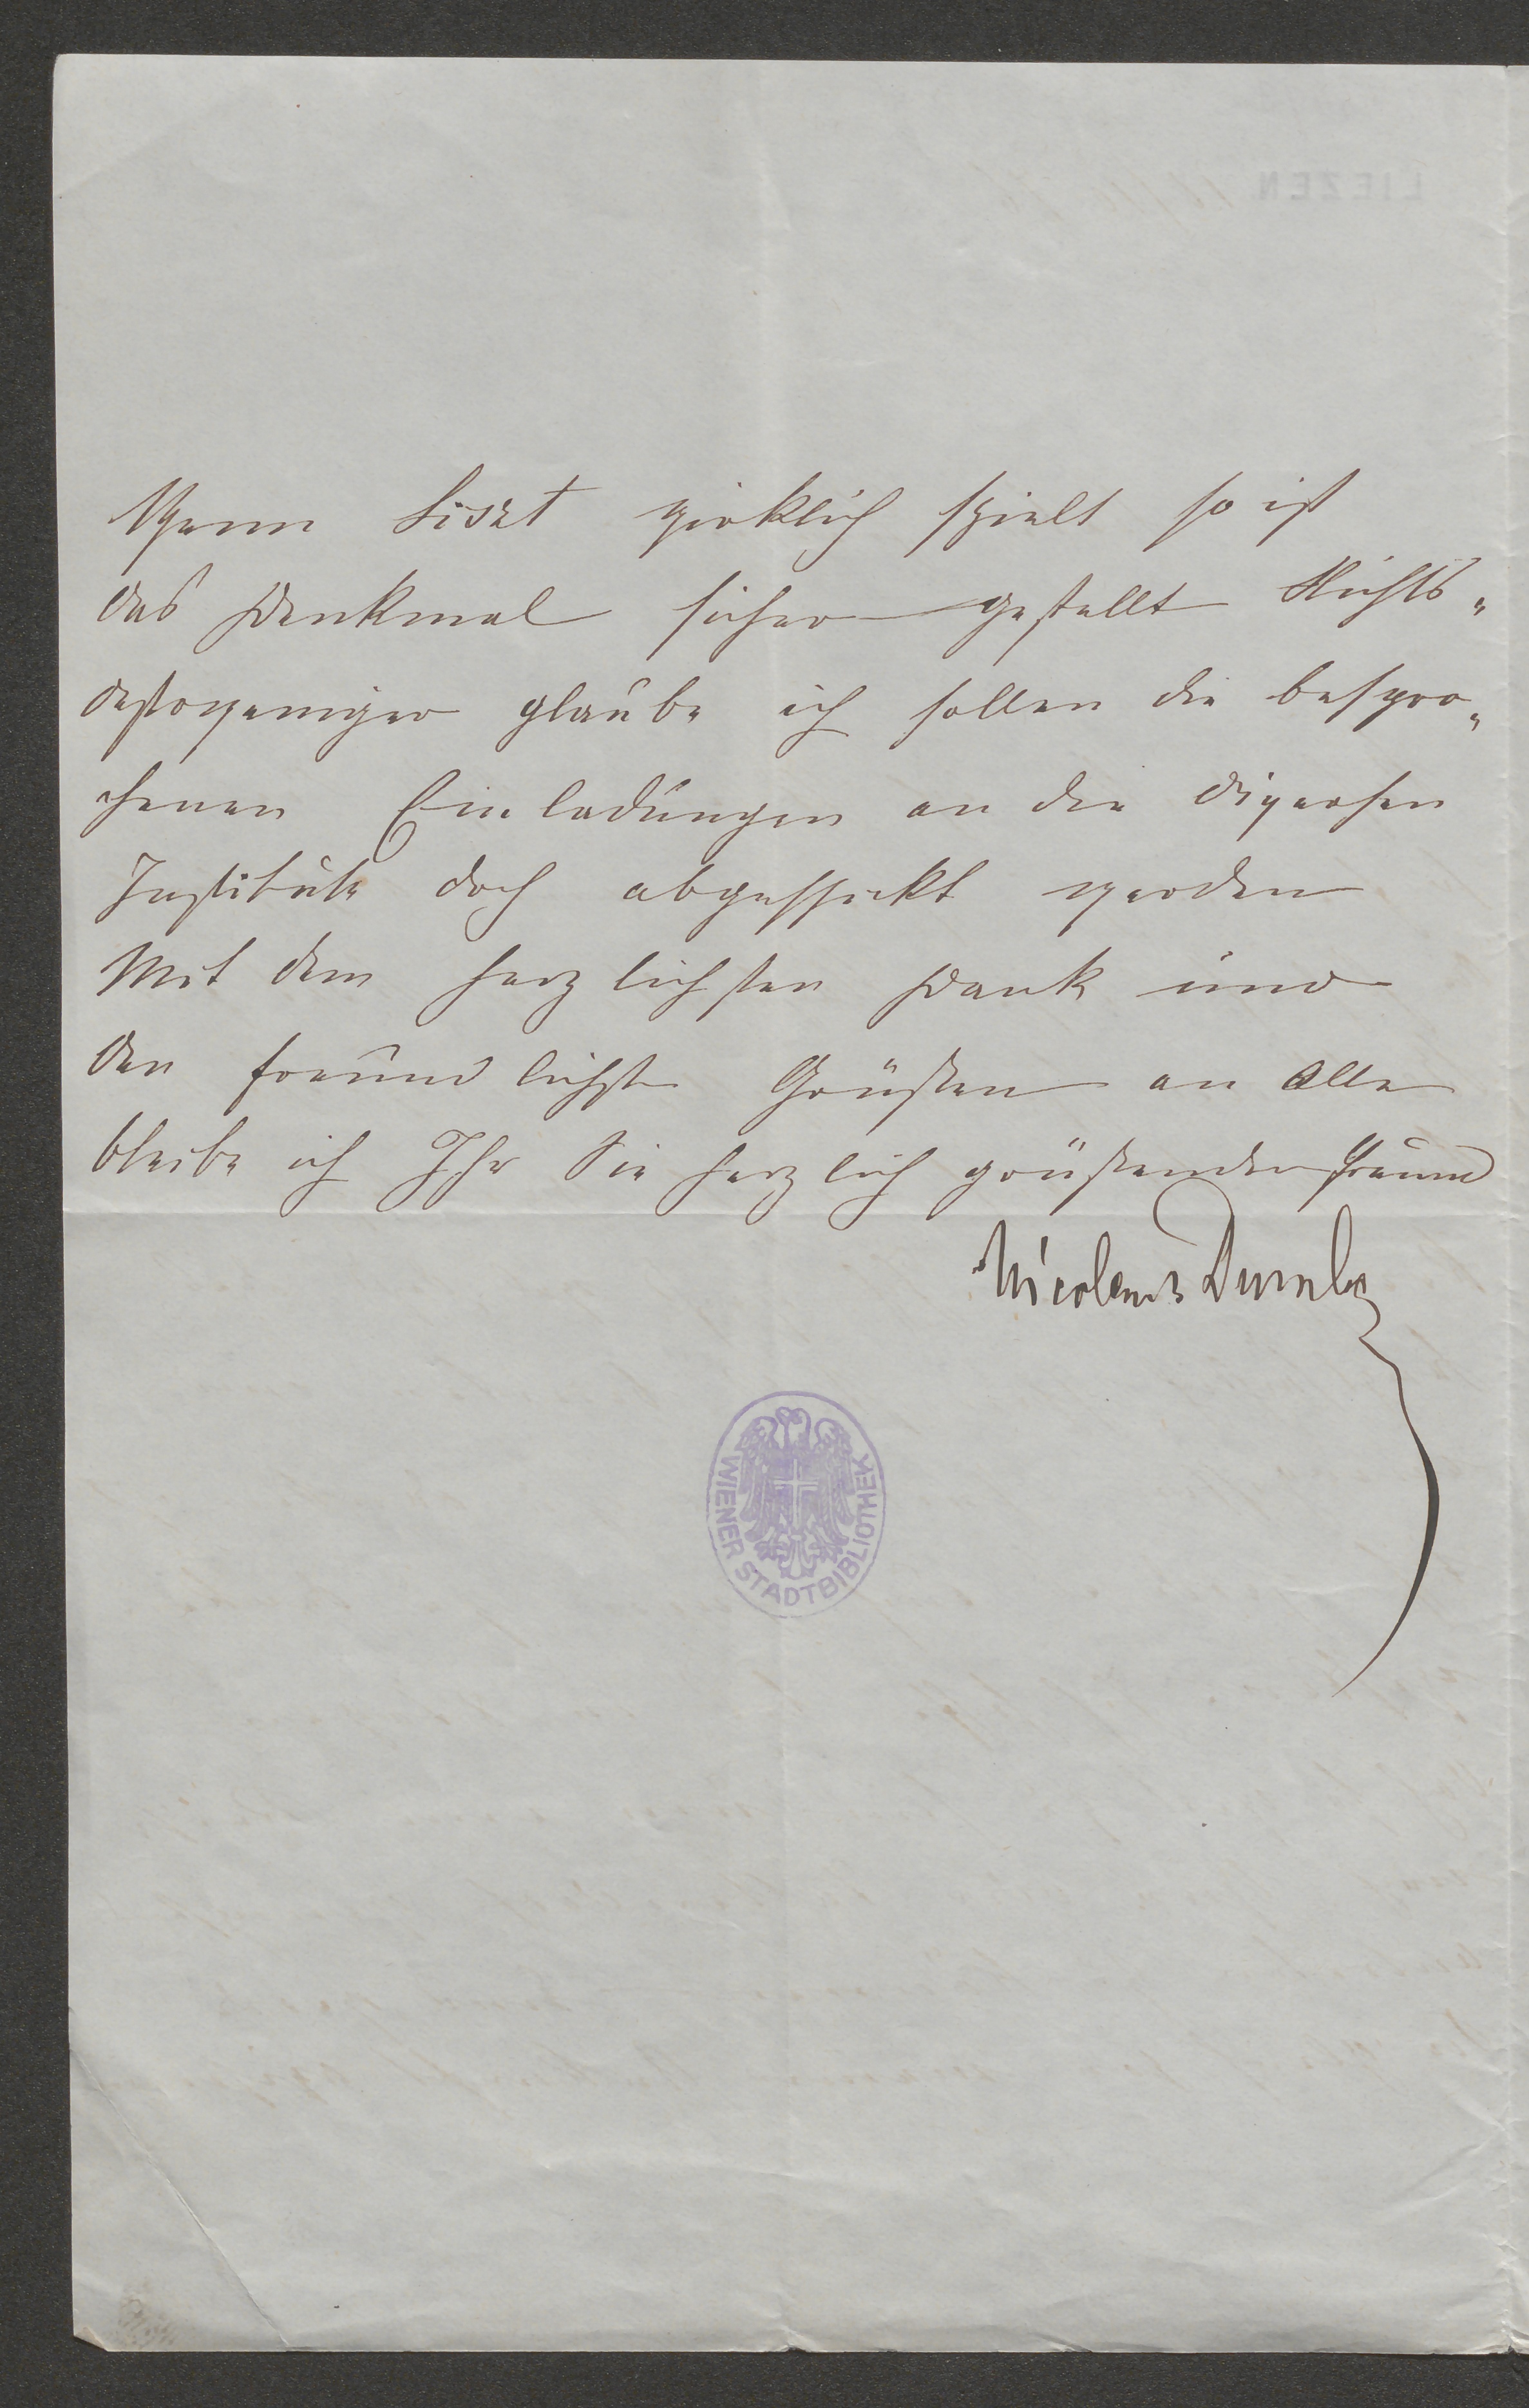 LIEZEN
Wenn Liszt wirklich spielt so ist
das Denkmal sicher gestellt Nichts„
destoweniger glaube ich sollen die bespro„
chenen Einladungen an die diversen
Institute doch abgeschickt werden
Mit dem herzlichsten Dank und
den freundlichste Grüßen an Alle
bleibe ich Ihr Sie herzlich grüßender Freund
Nicolaus Dumba
WIENER STADTBIBLIOTHEK